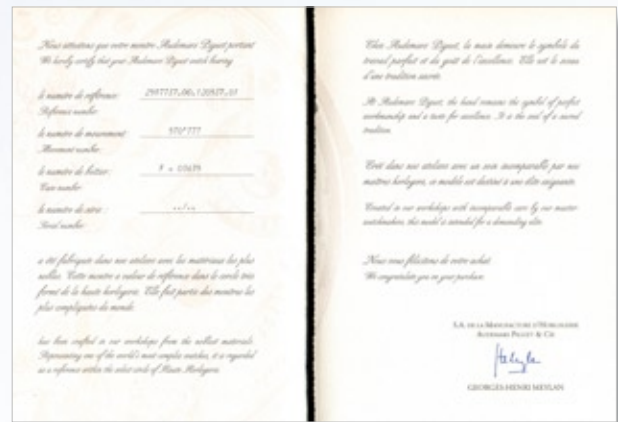 Nous attestons que votre montre Audemars Piguet portant
We hereby certify that your Audemars Piguet watch bearing
le numéro de référence:
Reference number:
le numéro de mouvement:
570'777
Movement number:
le numéro de boîtier:
Case number:
le numéro de série:
--/--
Serial number:
a été fabriquée dans nos ateliers avec les matériaux les plus
nobles. Cette montre a valeur de référence dans le cercle très
fermé de la haute horlogerie. Elle fait partie des montres les
plus compliquées du monde.
has been crafted in our workshops from the noblest materials.
Representing one of the world's most complex watches, it is regarded
as a reference within the select circle of Haute Horlogerie.
Chez Audemars Piguet, la main demeure le symbole du
travail parfait et du goût de l'excellence. Elle est le sceau
d'une tradition sacrée.
At Audemars Piguet, the hand remains the symbol of perfect
workmanship and a taste for excellence. It is the seal of a sacred
tradition.
Créé dans nos ateliers avec un soin incomparable par nos
maîtres horlogers, ce modèle est destiné à une élite exigeante.
Created in our workshops with incomparable care by our master-
watchmakers, this model is intended for a demanding elite.
Nous vous félicitons de votre achat.
We congratulate you on your purchase.
S.A. DE LA MANUFACTURE D'HORLOGERIE
AUDEMARS PIGUET & CIE
GEORGES-HENRI MEYLAN